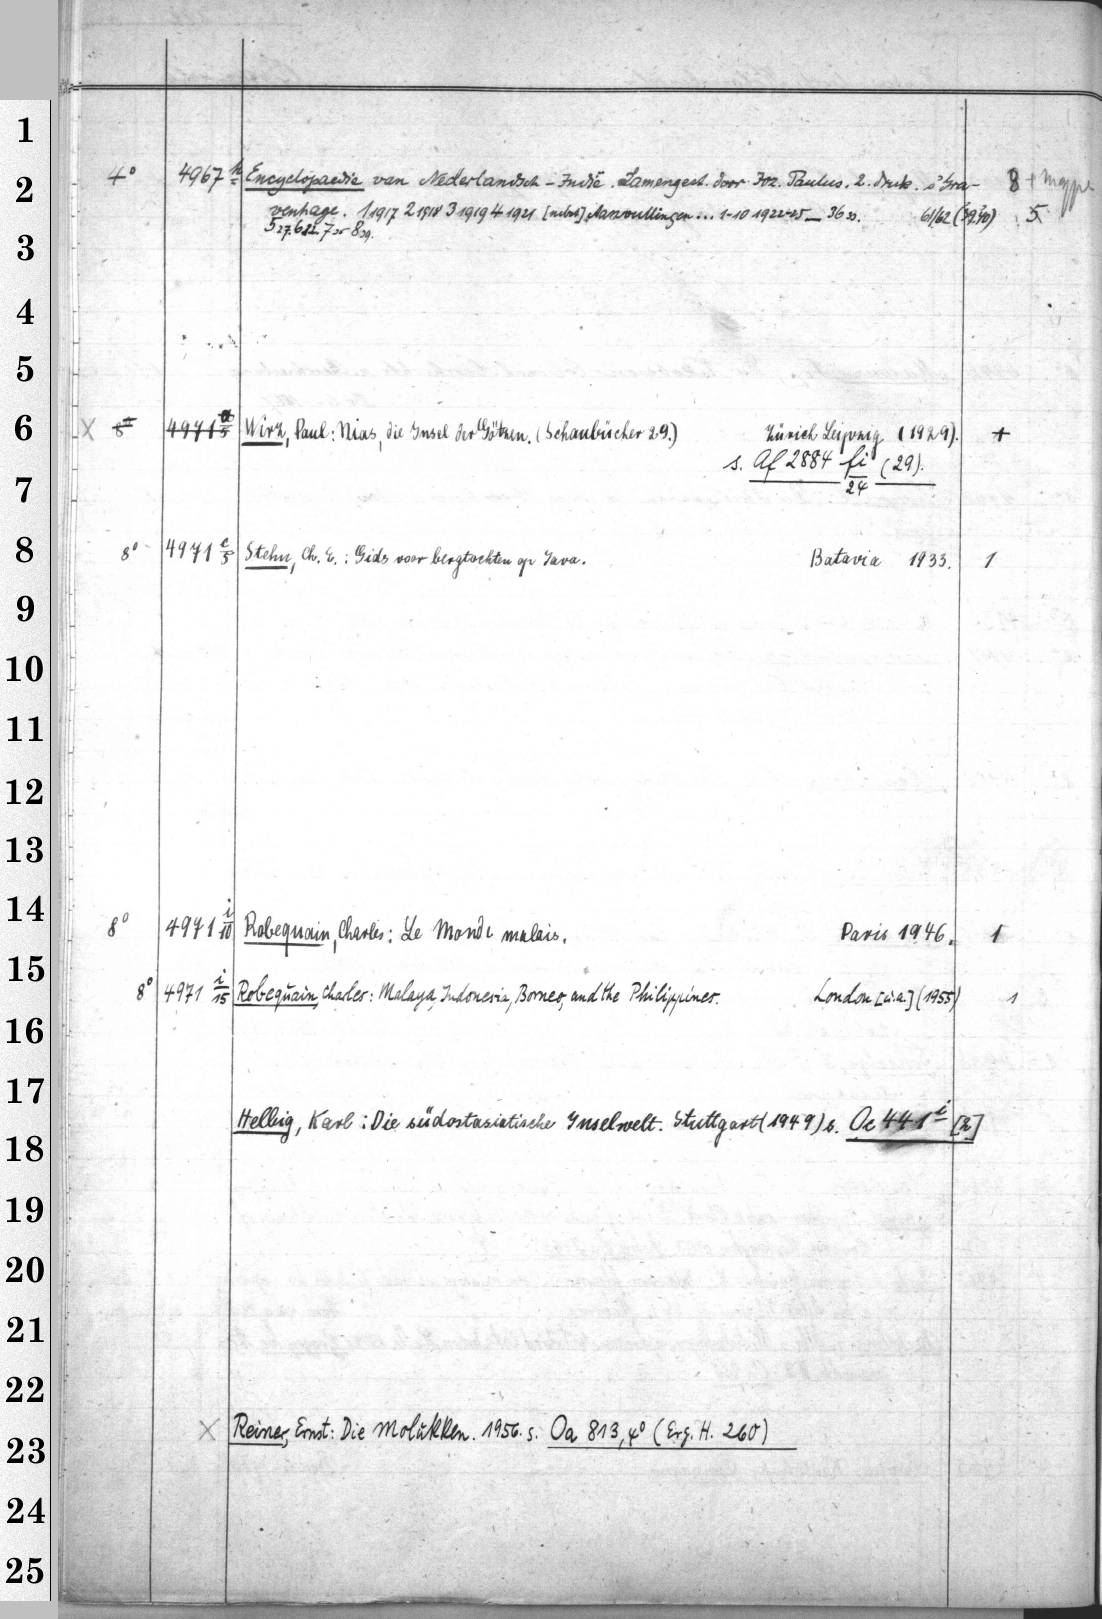 1
2
3
4
5
6
7
8
9
10
11
12
13
14
15
16
17
18
19
20
21
22
23
24
25
4° 4967 h Encyclopaedie van Nederlandsch-Indië. Samengest. door Joz. Paulus. 2. druk. s'Gra- 8 + Mappe
venhage. 1 1917 2 1918 3 1919 4 1921 [nebst] Aanvullingen ... 1-10 1922-25 — 36 61/62 (39.40) 5
5 27. 6 32. 7 35 8 39.
X 8° 4971 a/5 Wirz, Paul: Nias, die Insel der Götzen. (Schaubücher 29.) Zürich Leipzig (1929). 1
s. Af 2884 fi/24 (29).
8° 4971 c/5 Stehn, Ch. E.: Gids voor bergtochten op Java. Batavia 1933. 1
8° 4971 i/10 Robequain, Charles: Le Monde malais. Paris 1946. 1
8° 4971 i/15 Robequain, Charles: Malaya, Indonesia, Borneo, and the Philippines. London [u.a.] (1955) 1
Helbig, Karl: Die südostasiatische Inselwelt. Stuttgart (1949) s. Oc 441 i [2]
X Reiner, Ernst: Die Molukken. 1956. s. Oa 813, 4° (Erg. H. 260)